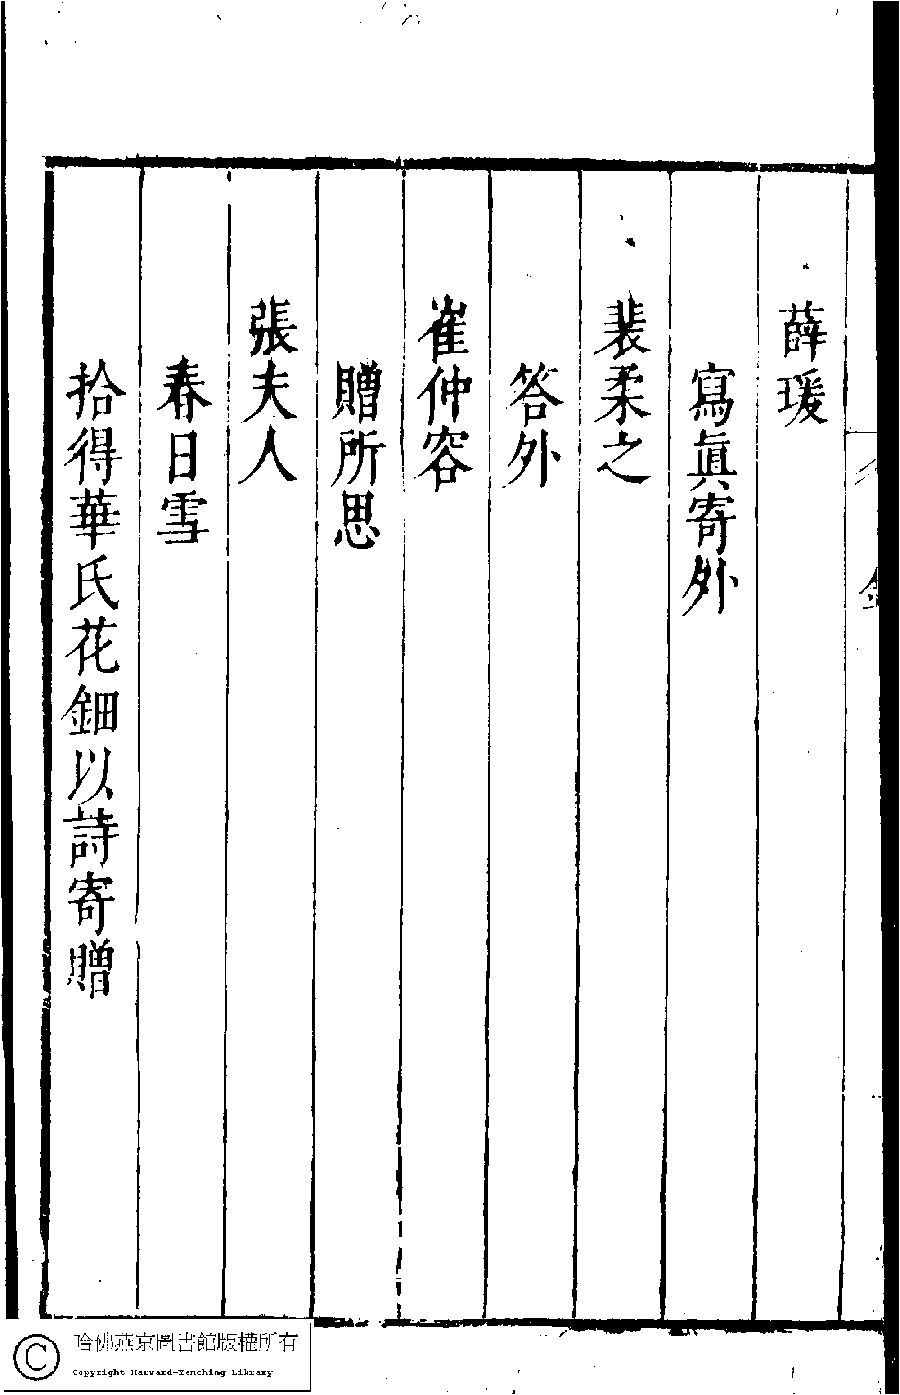 薛瑗
寫眞寄外
裴柔之
答外
崔仲容
贈所思
張夫人
春日雪
拾得華氏花鈿以詩寄贈
哈佛燕京圖書館版權所有
Copyright Harvard-Yenching Library